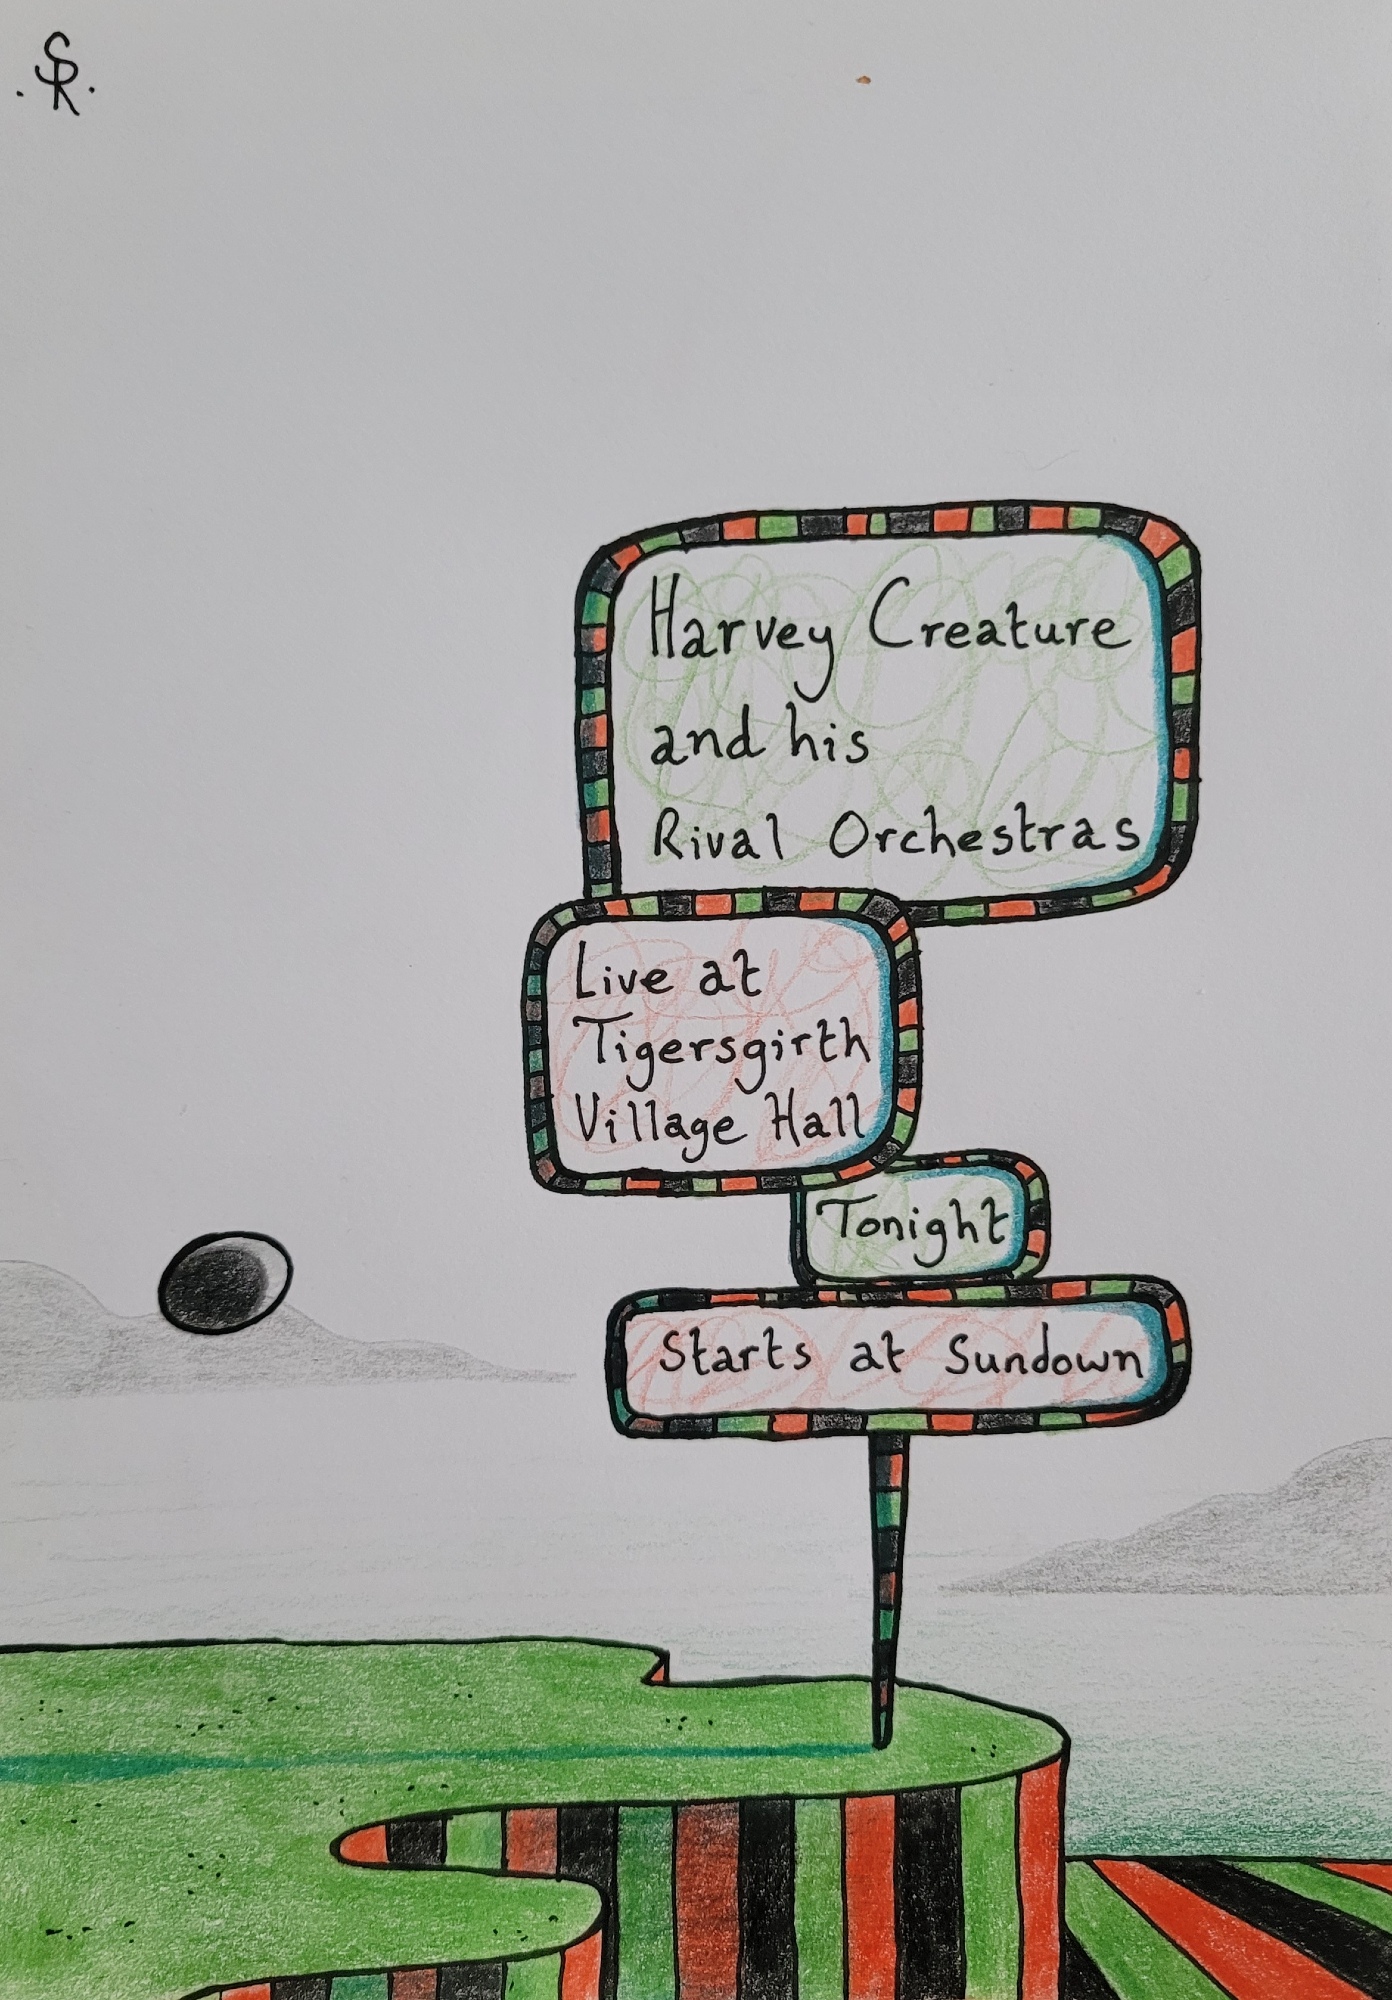 SR
Harvey Creature
and his
Rival Orchestras
Live at
Tigersgirth
Village Hall
Tonight
Starts at Sundown